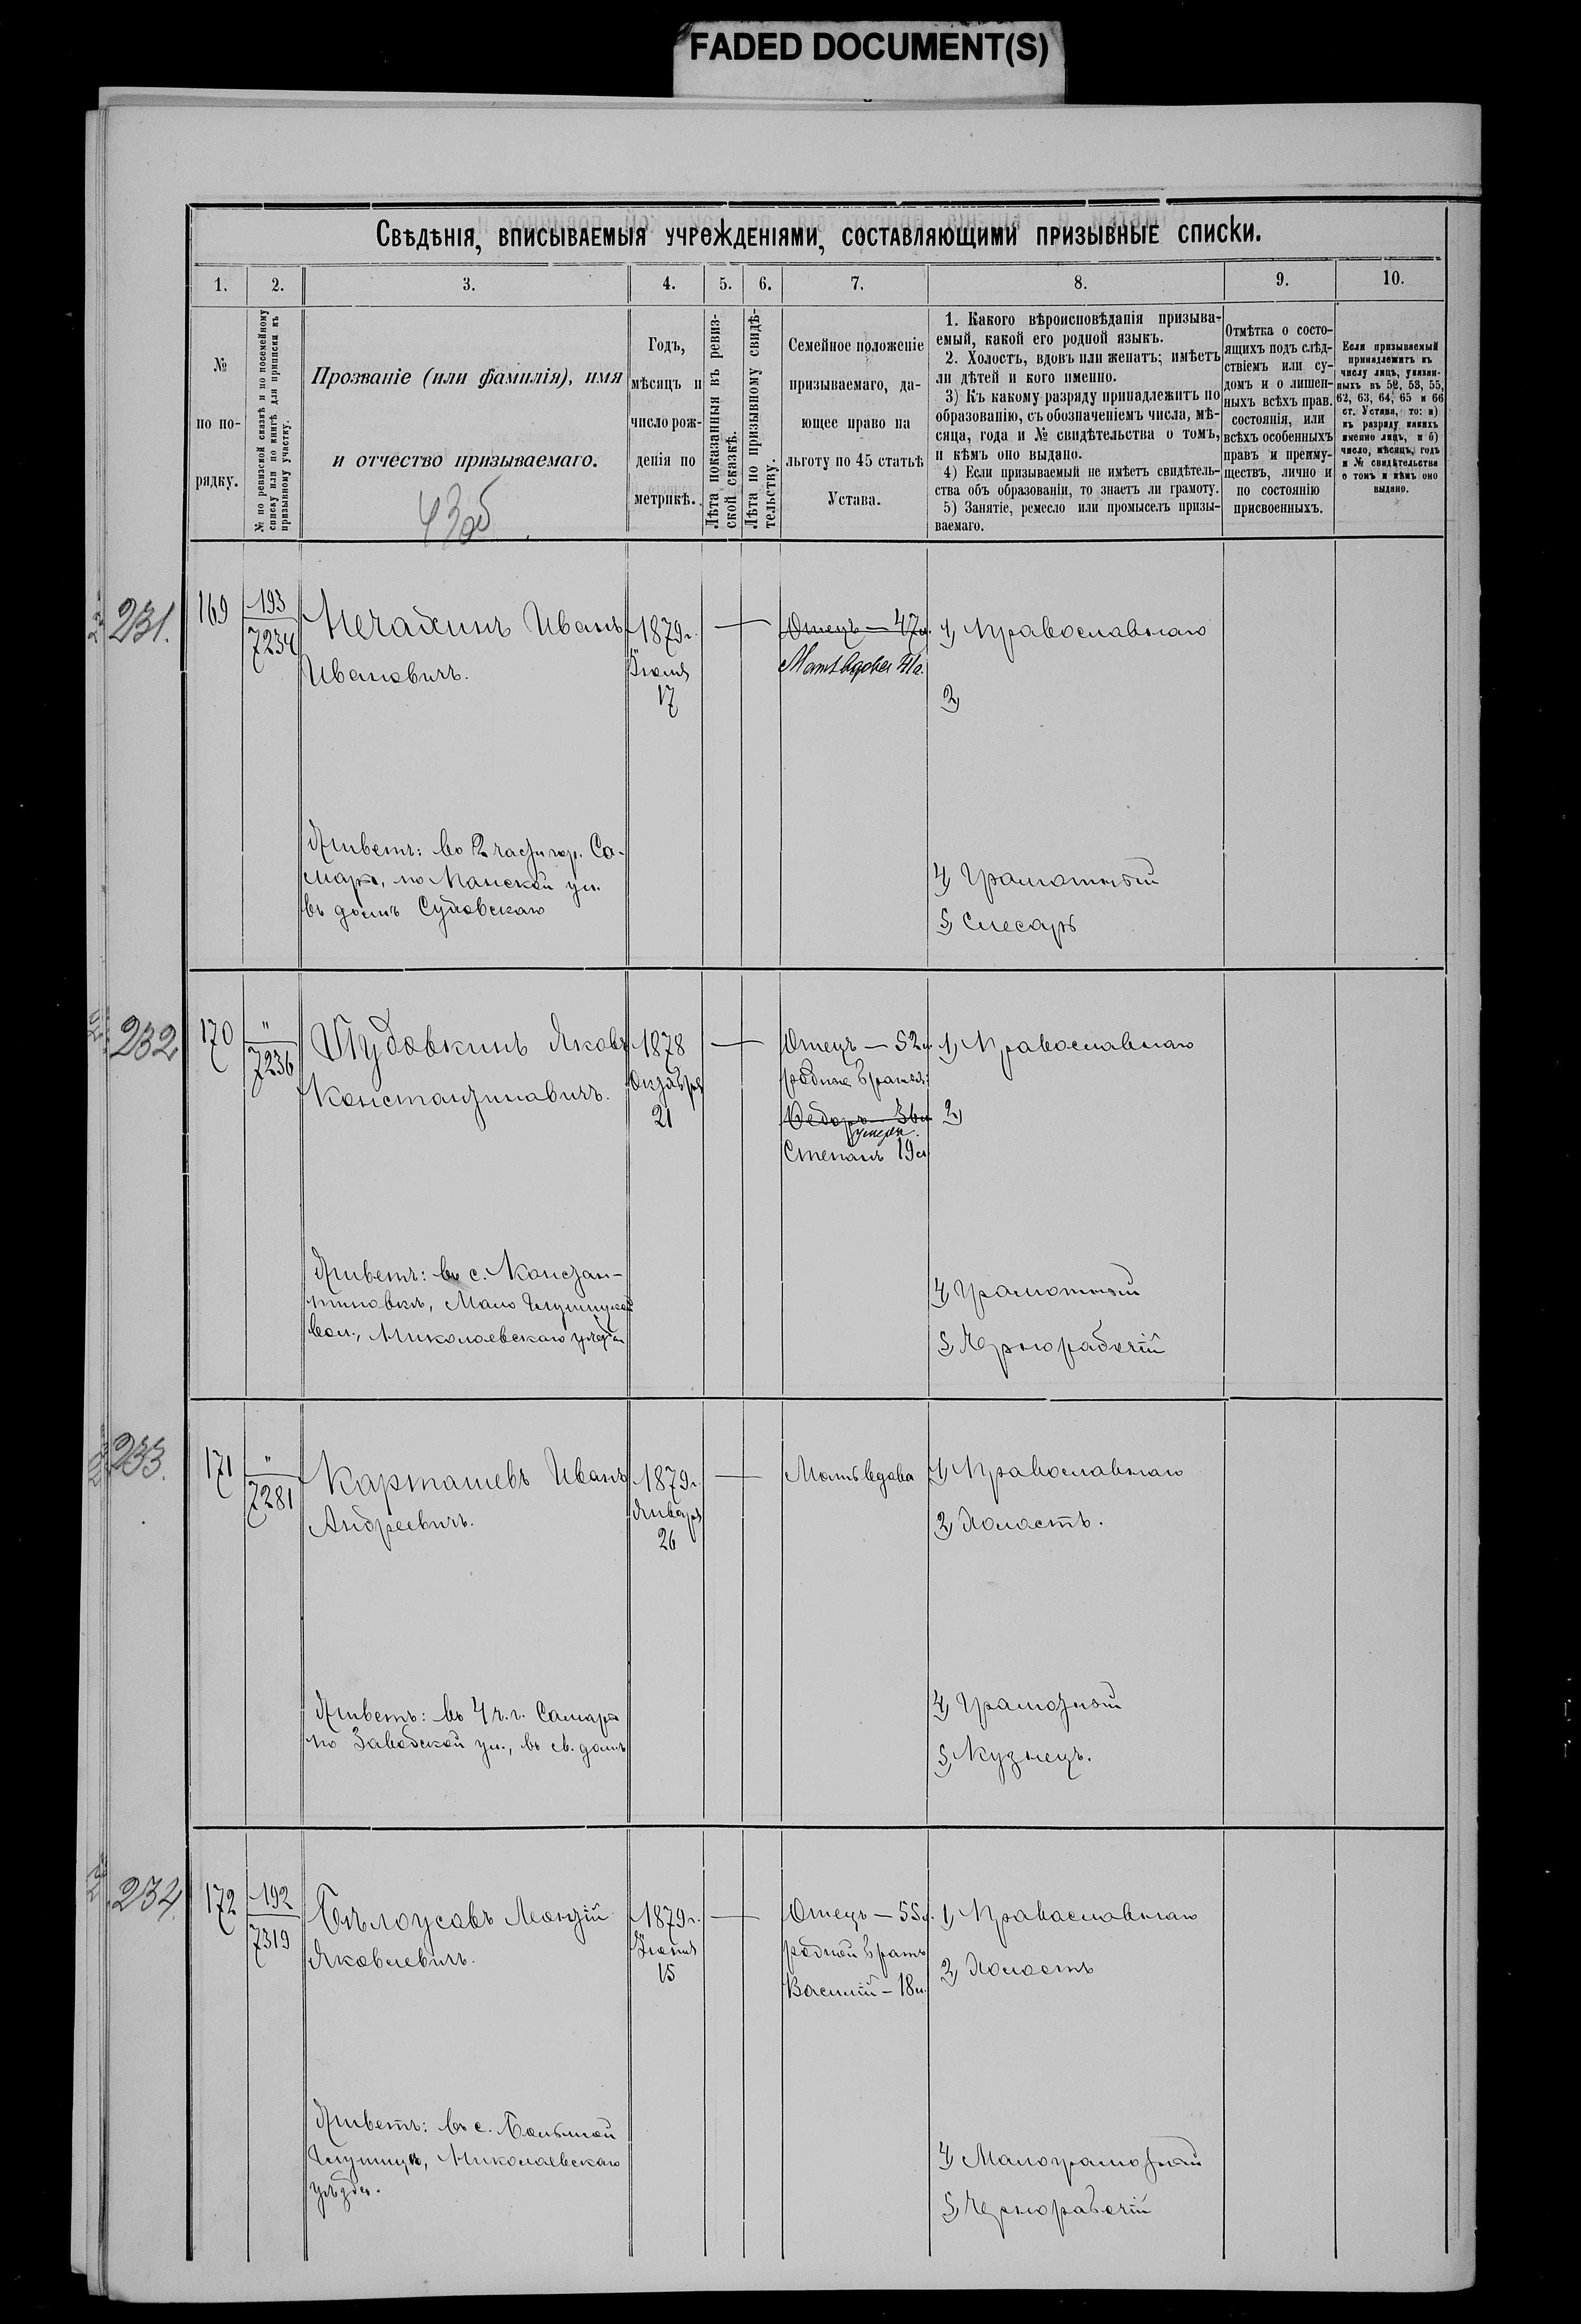 FADED DOCUMENT(S)
Свѣдѣнія, вписываемыя учрежденіями, составляющими призывные списки.
1. 2. 3. 4. 5. 6. 7. 8. 9. 10.
№
по по-
рядку.
№ по ревизской сказкѣ и по посемейному
списку или по книгѣ для приписки къ
призывному участку.
Прозваніе (или фамилія), имя
и отчество призываемаго.
Годъ,
мѣсяцъ и
число рож-
денія по
метрикѣ.
Лѣта показанныя въ ревиз-
ской сказкѣ.
Лѣта по призывному свидѣ-
тельству.
Семейное положеніе
призываемаго, да-
ющее право на
льготу по 45 статьѣ
Устава.
1. Какого вѣроисповѣданія призыва-
емый, какой его родной языкъ.
2. Холостъ, вдовъ или женатъ; имѣетъ
ли дѣтей и кого именно.
3) Къ какому разряду принадлежитъ по
образованію, съ обозначеніемъ числа, мѣ-
сяца, года и № свидѣтельства о томъ,
и кѣмъ оно выдано.
4) Если призываемый не имѣетъ свидѣтель-
ства объ образованіи, то знаетъ ли грамоту.
5) Занятіе, ремесло или промыселъ призы-
ваемаго.
Отмѣтка о состо-
ящихъ подъ слѣд-
ствіемъ или су-
домъ и о лишен-
ныхъ всѣхъ прав.
состоянія, или
всѣхъ особенныхъ
правъ и преиму-
ществъ, лично и
по состоянію
присвоенныхъ.
Если призываемый
принадлежитъ къ
числу лицъ, указан-
ныхъ въ 52, 53, 55,
62, 63, 64, 65 и 66
ст. Устава, то: а)
къ разряду какихъ
именно лицъ, и б)
число, мѣсяцъ, годъ
и № свидѣтельства
о томъ и кѣмъ оно
выдано.
231.
169
193
7234
Иванъ
Ивановичъ.
1879г.
17
Отецъ — 47л.
Мать вдова 41г.
1) Православнаго
2)
Живетъ: во 2 части гор. Са-
марѣ, по Панской ул.
въ домѣ
4) Грамотный
5) Слесарь
232
170
"
7236
Яковъ
Константиновичъ.
1878
Октября
21
Отецъ — 52л.
родные братья:
Ѳедоръ — 36л
умеръ.
Степанъ 19л
1) Православнаго
2)
Живетъ: въ с. Констан-
тиновкѣ, Мало Глушицкой
вол., Николаевскаго уѣзда
4) Грамотный
5) Чернорабочій
233.
171
"
7281
Карташевъ Иванъ
Андреевичъ.
1879г.
Января
26
Мать вдова
1) Православнаго
2) Холостъ.
Живетъ: въ 4 ч. г. Самары
по Заводской ул., въ св. домѣ
4) Грамотный
5) Кузнецъ.
234.
172
192
7319
Бѣлоусовъ Леонтій
Яковлевичъ.
1879г.
15
Отецъ — 55л.
родной братъ
Василій — 18л.
1) Православнаго
2) Холостъ
Живетъ: въ с. Большой
Глушицѣ, Николаевскаго
уѣзда.
4) Малограмотный
5) Чернорабочій